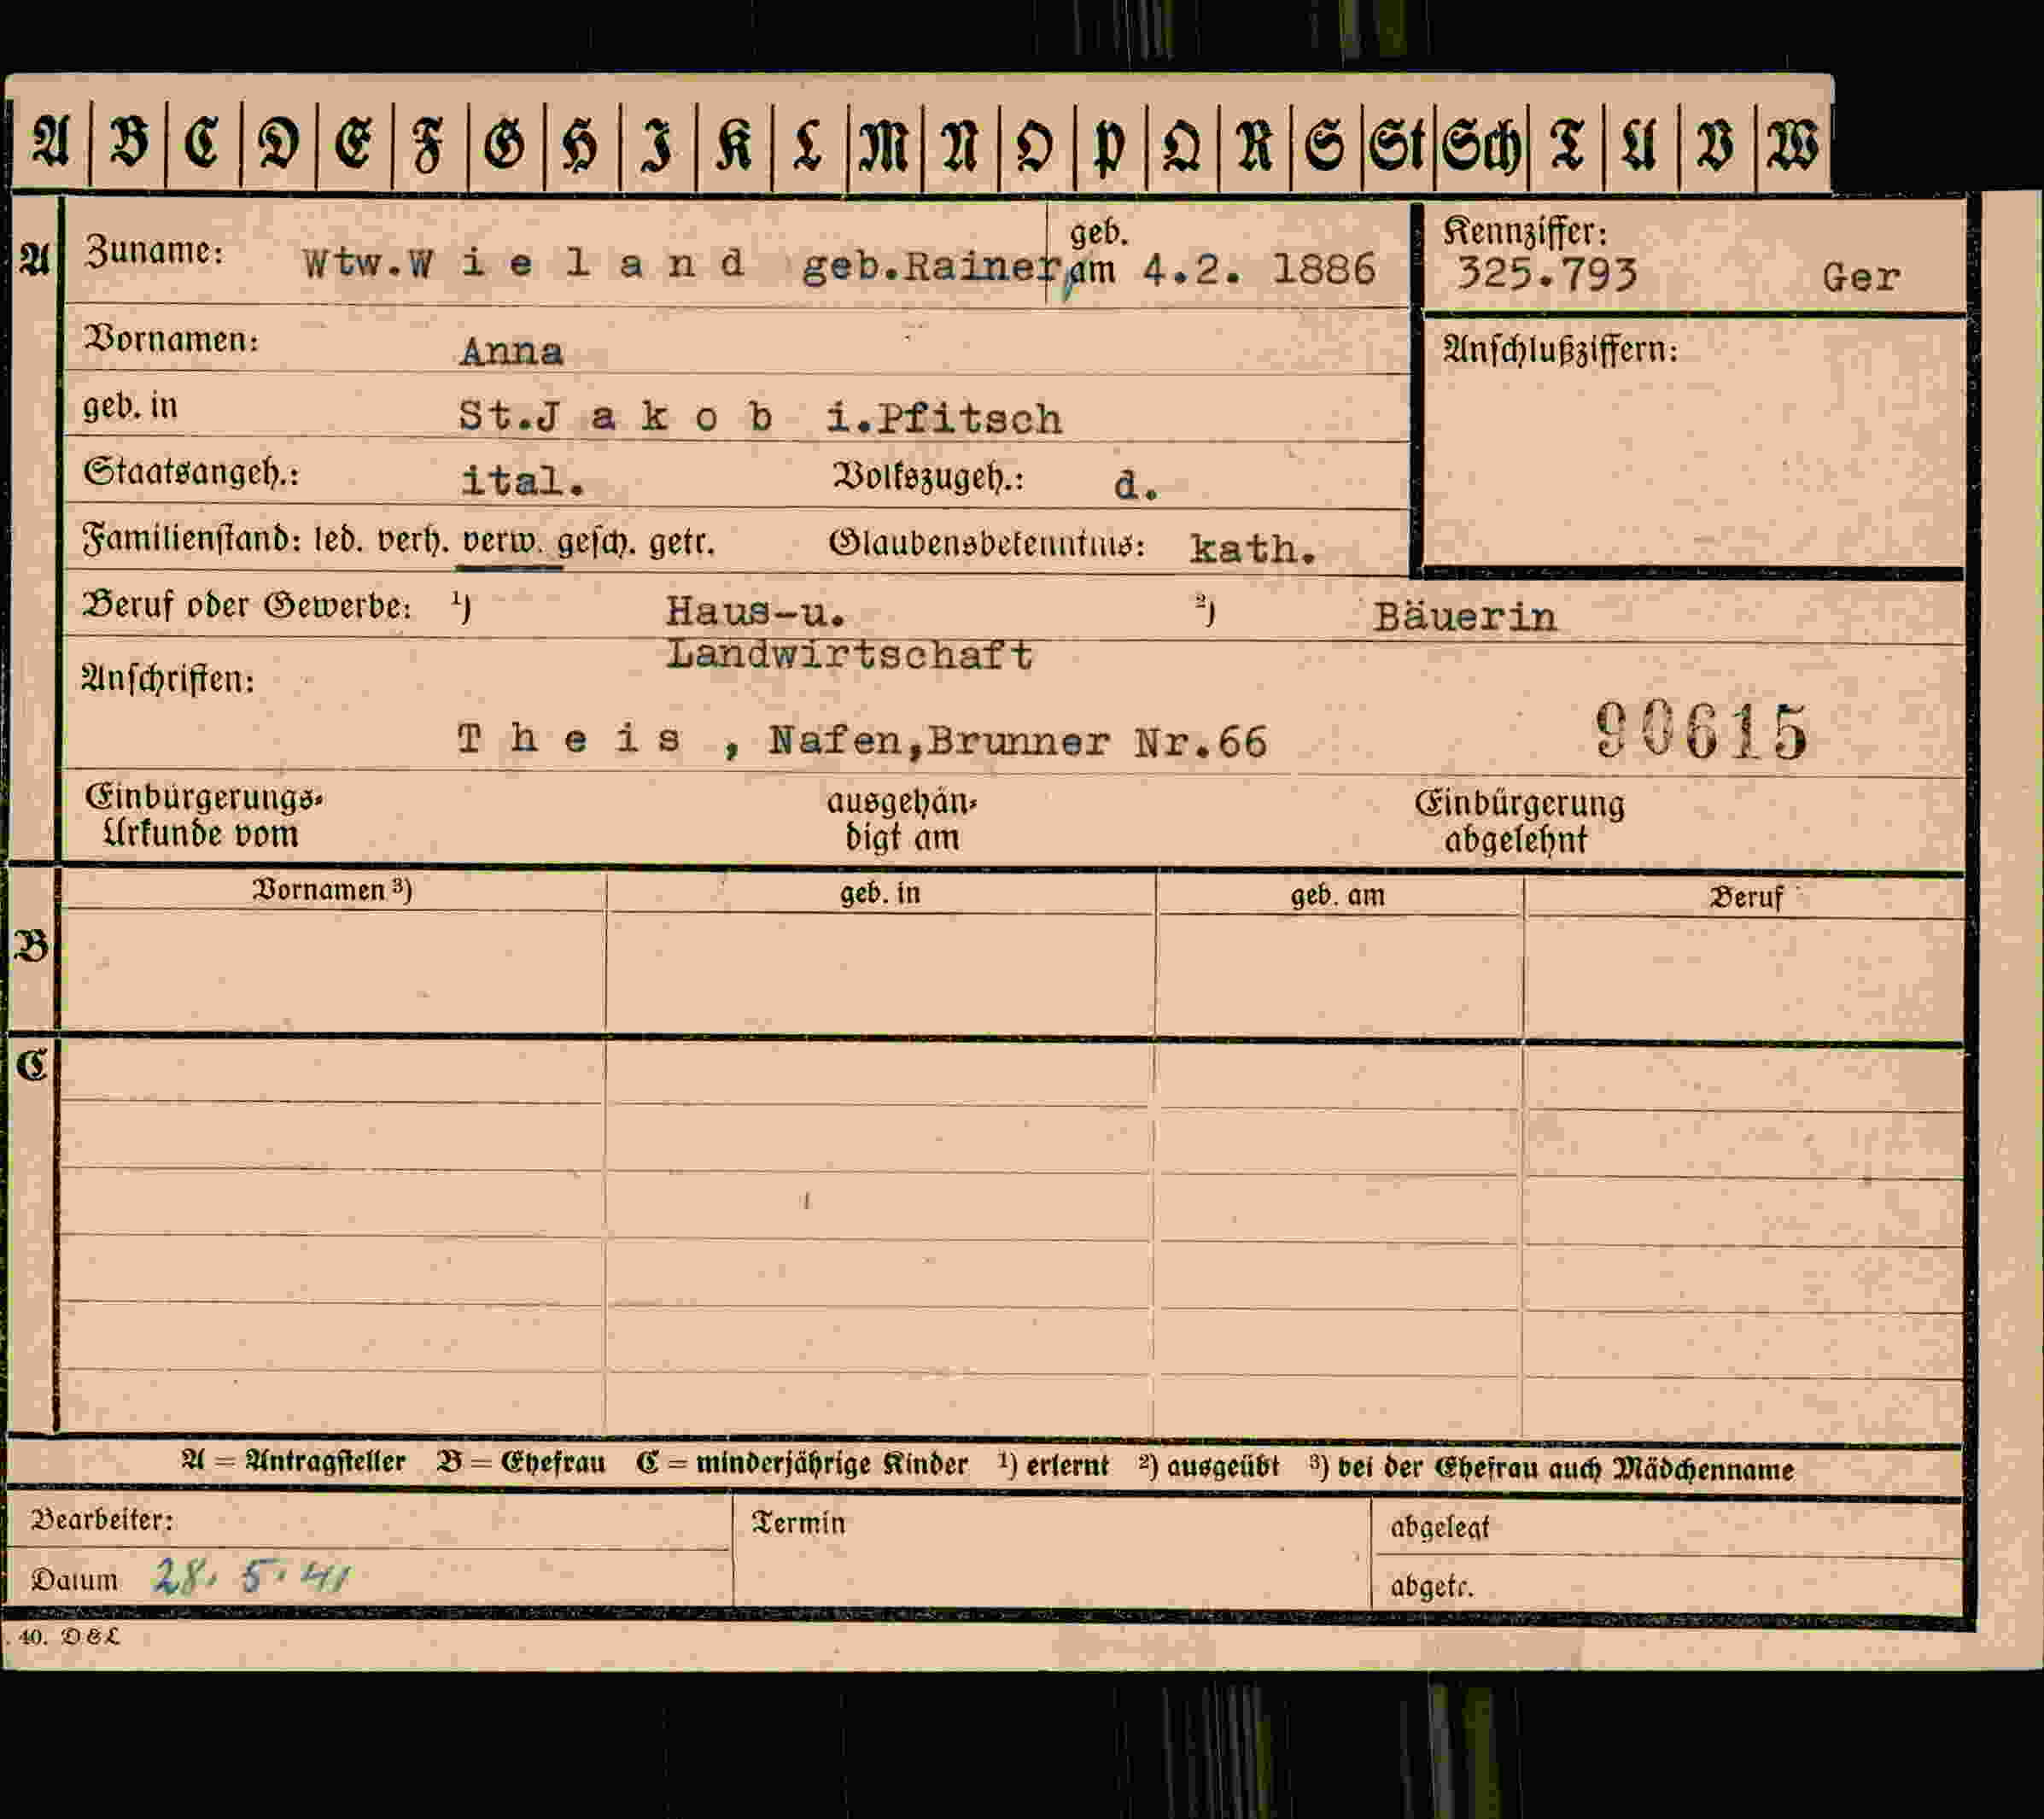 A B C D E F G H I K L M N O P Q R S St Sch T U V W
A Zuname: Wtw.W i e l a n d geb.Rainer, geb. am 4.2. 1886 Kennziffer: 325.793 Ger
Vornamen: Anna Anschlußziffern:
geb. in St.J a k o b i.Pfitsch
Staatsangeh.: ital. Volkszugeh.: d.
Familienstand: led. verh. verw. gesch. getr. Glaubensbekenntnis: kath.
Beruf oder Gewerbe: 1) Haus-u. 2) Bäuerin
Landwirtschaft
Anschriften:
T h e i s , Nafen,Brunner Nr.66 90615
Einbürgerungs- ausgehän- Einbürgerung
Urkunde vom digt am abgelehnt
Vornamen 3) geb. in geb. am Beruf
B
C
A = Antragsteller B = Ehefrau C = minderjährige Kinder 1) erlernt 2) ausgeübt 3) bei der Ehefrau auch Mädchenname
Bearbeiter: Termin abgelegt
Datum 28. 5. 41 abgetr.
. 40. D&L